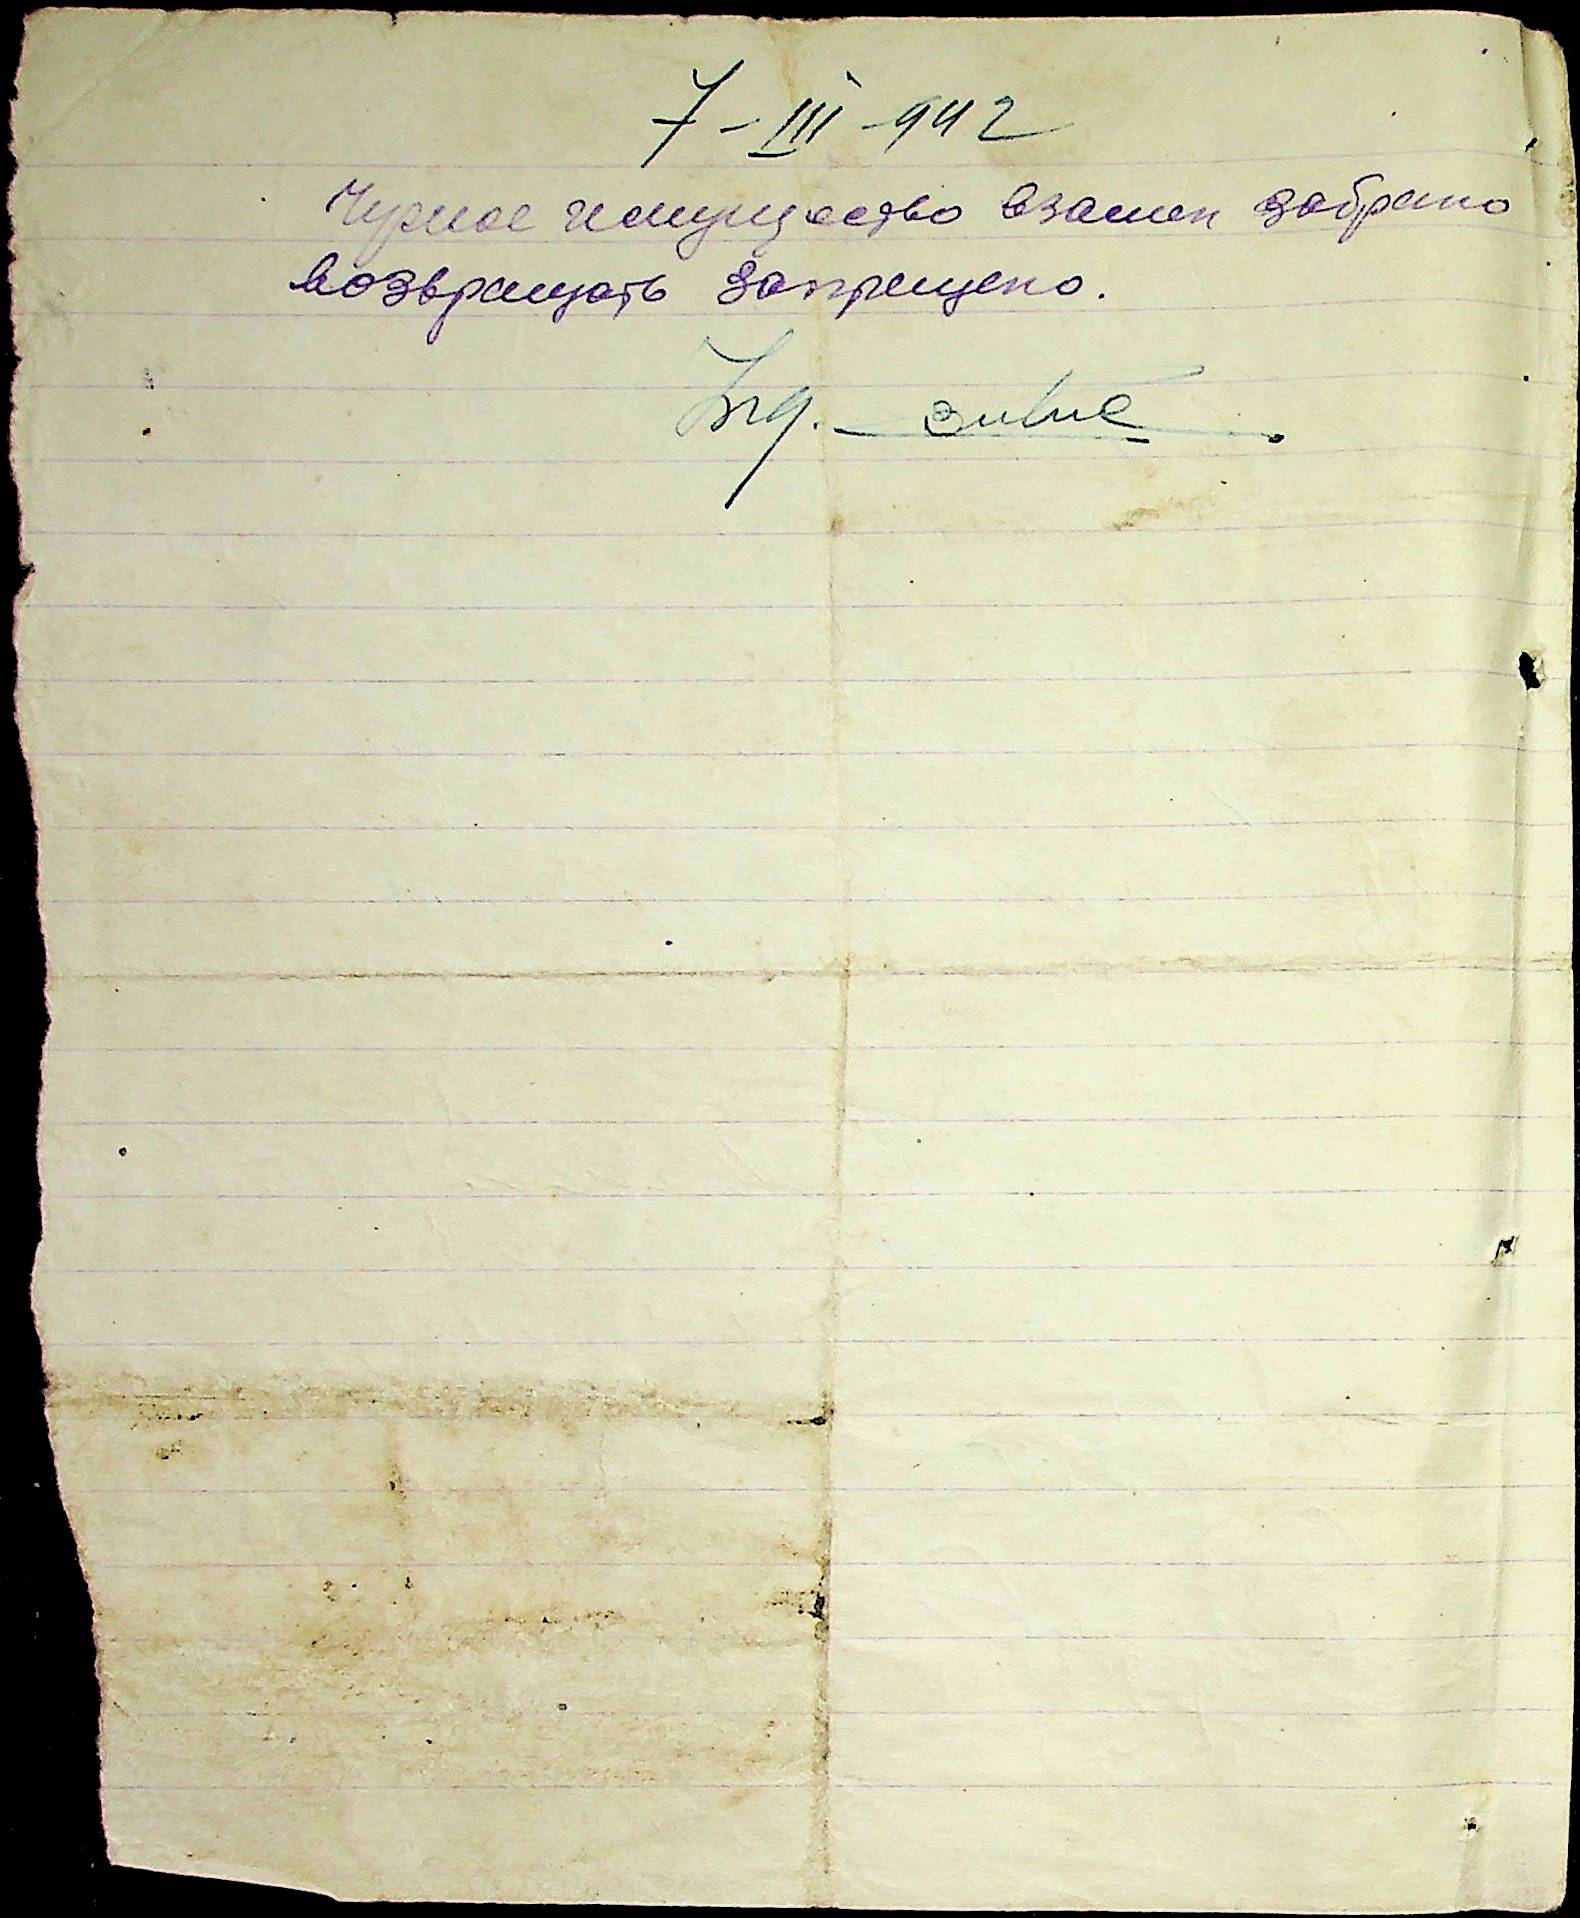 7-III-942
Чужое имущество взамен забрано
возвращать запрещено.
Ing.